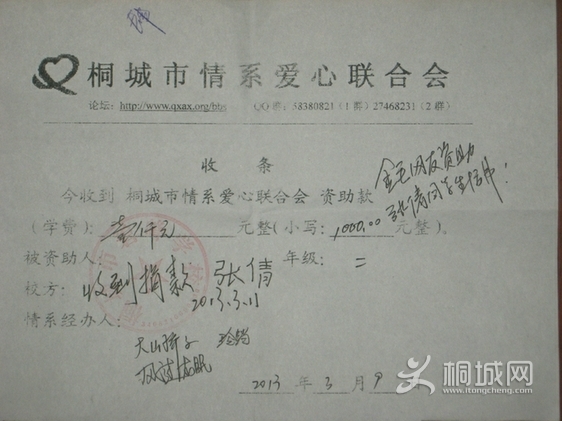 桐城市情系爱心联合会
论坛：http://www.qxax.org/bbs QQ 群：58380821（1 群）27468231（2 群）
收 条
金毛网友资助
张倩同学生活费！
今收到 桐城市情系爱心联合会 资助款
（学费）：壹仟元 元整（小写：1000.00 元整）。
被资助人： 张倩 年级： 二
校方： 收到捐款
2013.3.11
情系经办人：
大山骄子
2013 年 3 月 9
桐城网
www.itongcheng.com